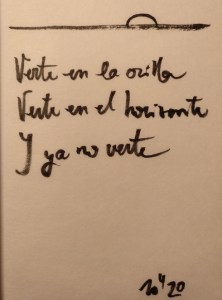 Verte en la orilla
Verte en el horizonte
Y ya no verte